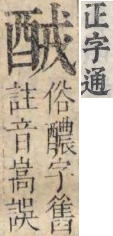 正字通
俗醲字舊
註音嵩誤